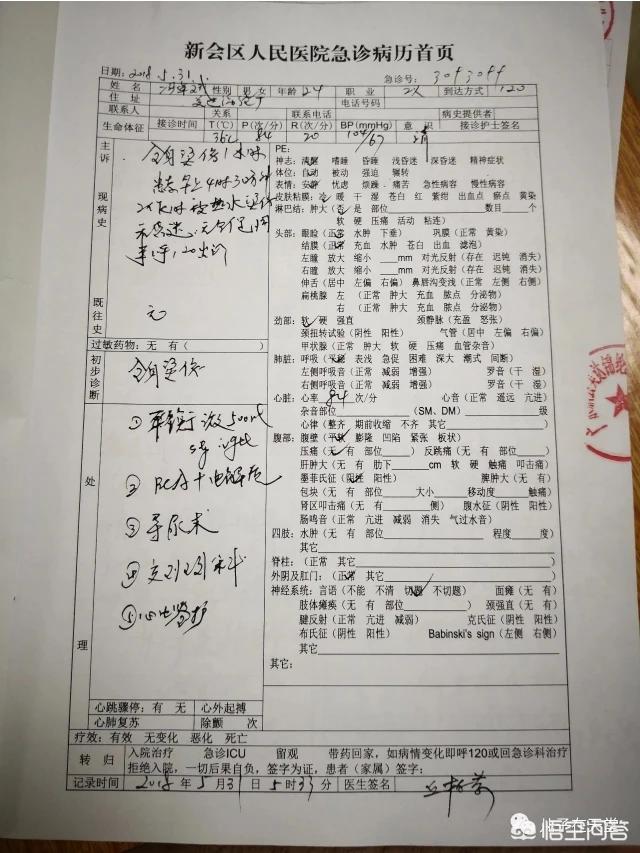 新会区人民医院急诊病历首页
日期: 2018.5.31 急诊号: 3093099
姓名 性别 男 女 年龄 24 职业 到达方式 120
住址 电话号码
联系人 关系 联系电话 病史提供者
生命体征 接诊时间 T(℃) P(次/分) R(次/分) BP(mmHg) 意识 接诊护士签名
84 20 104/67 清
主诉
全身烫伤1小时
现病史
患者早上4时30分
既往史
无
过敏药物: 无 有( )
初步诊断
全身烫伤
处理
① 平衡液500ml
② 电解质
③ 导尿术
④
⑤ 心电监护
心跳骤停: 有 无 心外起搏
心肺复苏 除颤 次
PE:
神志: 清醒 嗜睡 昏睡 浅昏迷 深昏迷 精神症状
体位: 自动 被动 强迫 辗转
表情: 安静 忧虑 烦躁 痛苦 急性病容 慢性病容
皮肤粘膜: 冷 暖 干 湿 苍白 红 紫绀 出血点 瘀点 黄染
淋巴结: 肿大(否 是 部位 数目 个
软 硬 压痛 活动 粘连)
头部: 眼睑(正常 水肿 下垂) 巩膜(正常 黄染)
结膜(正常 充血 水肿 苍白 出血 滤泡)
左瞳 放大 缩小 ___mm 对光反射(存在 迟钝 消失)
右瞳 放大 缩小 ___mm 对光反射(存在 迟钝 消失)
伸舌(居中 左偏 右偏) 鼻唇沟变浅(正常 左侧 右侧)
扁桃腺 左 (正常 肿大 充血 脓点 分泌物)
右 (正常 肿大 充血 脓点 分泌物)
劲部: 软 硬 强直 颈静脉(充盈 怒张)
颈扭转试验(阴性 阳性) 气管(居中 左偏 右偏)
甲状腺(正常 肿大 硬 压痛 血管杂音)
肺脏: 呼吸(平稳 表浅 急促 困难 深大 潮式 间断)
左侧呼吸音(正常 减弱 增强) 罗音(干 湿)
右侧呼吸音(正常 减弱 增强) 罗音(干 湿)
心脏: 心率 84 次/分 心音(正常 遥远 亢进)
杂音部位 (SM、DM) 级
心律(整齐 期前收缩 不齐 其它 )
腹部: 腹壁(平软 膨隆 凹陷 紧张 板状)
压痛(无 有 部位 ) 反跳痛(无 有 部位 )
肝肿大(无 有 肋下 cm 软 硬 触痛 叩击痛)
墨菲氏征(阴性 阳性) 脾肿大(无 有)
包块(无 有 部位 大小 移动度 触痛)
肾区叩击痛(无 有 侧) 腹水征(阴性 阳性)
肠鸣音(正常 亢进 减弱 消失 气过水音)
四肢: 水肿(无 有 部位 程度 度)
其它
脊柱: (正常 其它 )
外阴及肛门: (正常 其它 )
神经系统: 言语(不能 不清 切题 不切题) 面瘫(无 有)
肢体瘫痪(无 有 部位 ) 颈强直(无 有)
腱反射(正常 亢进 减弱) 克氏征(阴性 阳性)
布氏征(阴性 阳性) Babinski's sign(左侧 右侧)
其它
其它:
疗效: 有效 无变化 恶化 死亡
转归 入院治疗 急诊ICU 留观 带药回家, 如病情变化即呼120或回急诊科治疗
拒绝入院, 一切后果自负, 签字为证, 患者(家属)签字:
记录时间 2018 年 5 月 31 日 5 时 33 分 医生签名
悟空问答